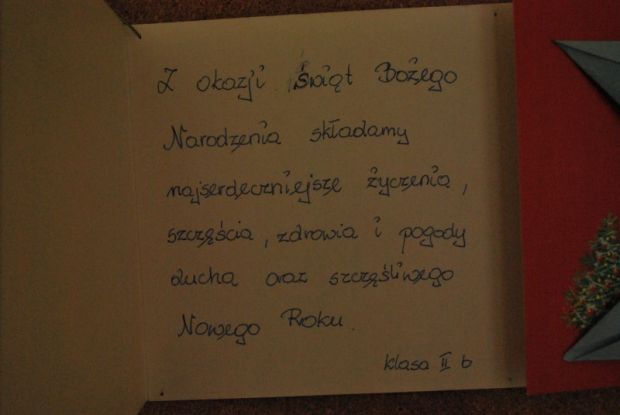 Z okazji świąt Bożego
Narodzenia składamy
najserdeczniejsze życzenia,
szczęścia, zdrowia i pogody
ducha oraz szczęśliwego
Nowego Roku.
klasa II b